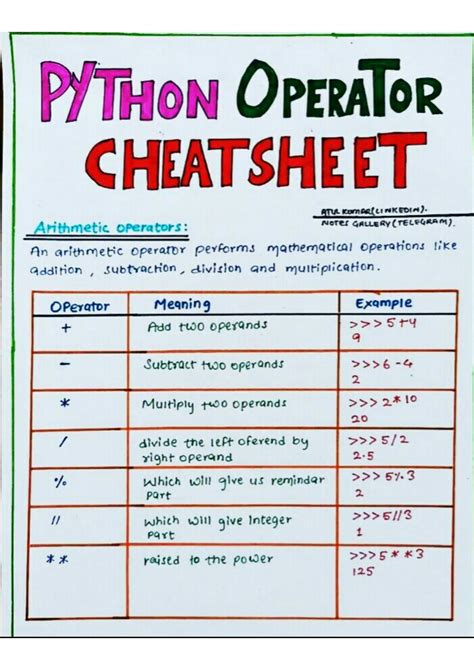 PYTHON OPERATOR
CHEATSHEET
ATUL KUMAR(LINKEDIN).
NOTES GALLERY(TELEGRAM).
Arithmetic operators:
An arithmetic operator performs mathematical operations like
addition, subtraction, division and multiplication.
Operator Meaning Example
+ Add two operands >>> 5+4
9
- Subtract two operands >>>6-4
2
* Multiply two operands >>> 2*10
20
/ divide the left oferend by >>>5/2
right operand 2.5
% Which will give us remindar >>>5%3
part 2
// which will give Integer >>>5//3
part 1
** raised to the power >>>5**3
125